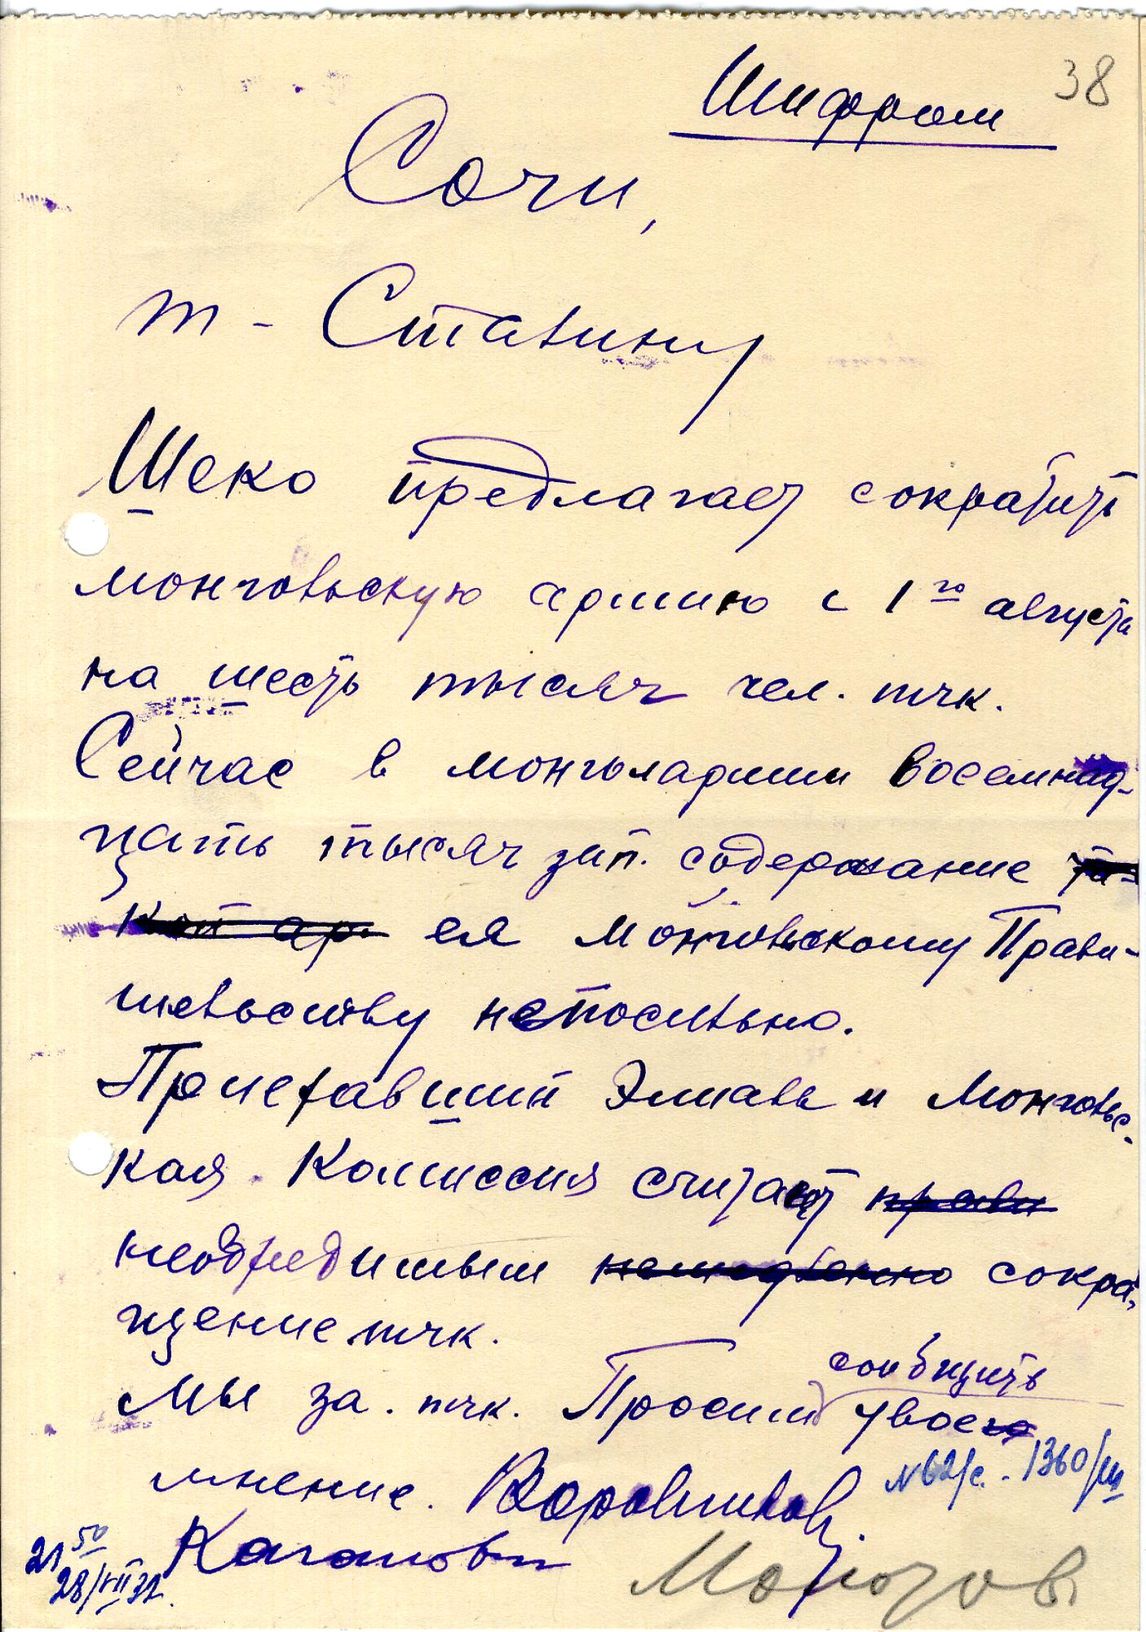 38
Шифром
Сочи,
т - Сталину
Шеко предлагает сократить
монгольскую армию с 1го августа
на шесть тысяч чел. тчк.
Сейчас в монголармии восемнад-
цать тысяч зпт. содержание та-
кой ар ея монгольскому Прави-
тельству непосильно.
Приехавший Элиава и Монгольс-
кая Комиссия считают
необходимым немедленно сокра-
щение тчк.
сообщить
Мы за. тчк. Просим твоего
мнение. Ворошилов.
№62/с. 1360/ш
Каганович
21 50
28/VII 32.
Молотов